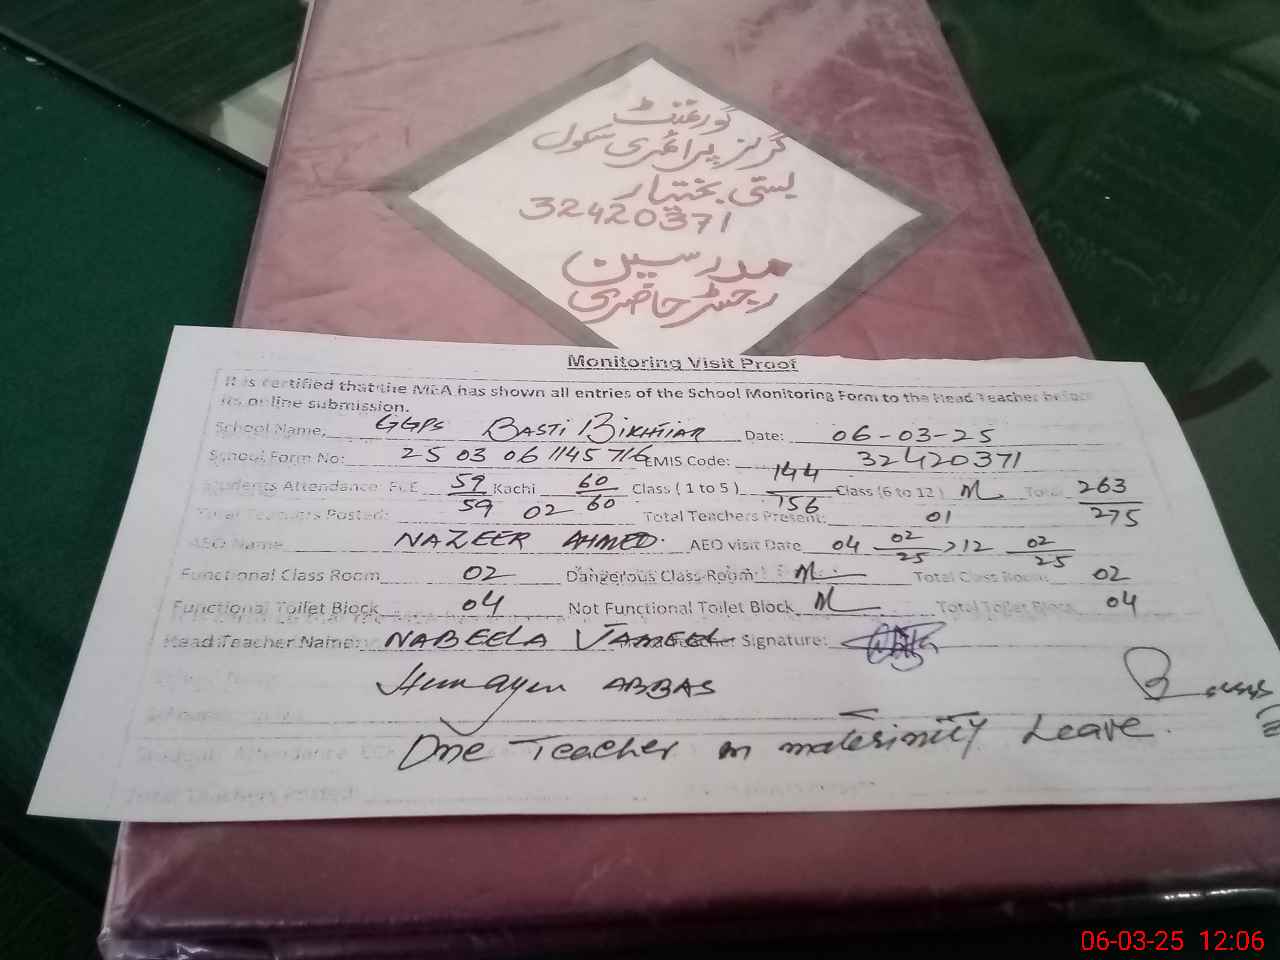 گورنمنٹ
گرلز پرائمری سکول
بستی بختیار
32420371
مدرسین
رجسٹر حاضری
Monitoring Visit Proof
It is certified that the MEA has shown all entries of the School Monitoring Form to the Head Teacher before
its online submission.
School Name: GGPS BASTI BIKHTIAR Date: 06-03-25
School Form No: 25 03 06 1145716 EMIS Code: 32420371
Students Attendance: ECE 59/59 Kachi 60/60 Class (1 to 5) 144/156 Class (6 to 12) Total 263/275
Total Teachers Posted: 02 Total Teachers Present: 01
AEO Name NAZEER AHMED. AEO visit Date 04 02/25 > 12 02/25
Functional Class Room 02 Dangerous Class Room: Total Class Room: 02
Functional Toilet Block 04 Not Functional Toilet Block Total Toilet Block 04
Head Teacher Name: NABEELA JAMEEL Teacher Signature:
Humayun ABBAS
One Teacher on matesinity Leave.
Total Teachers Posted:
06-03-25 12:06